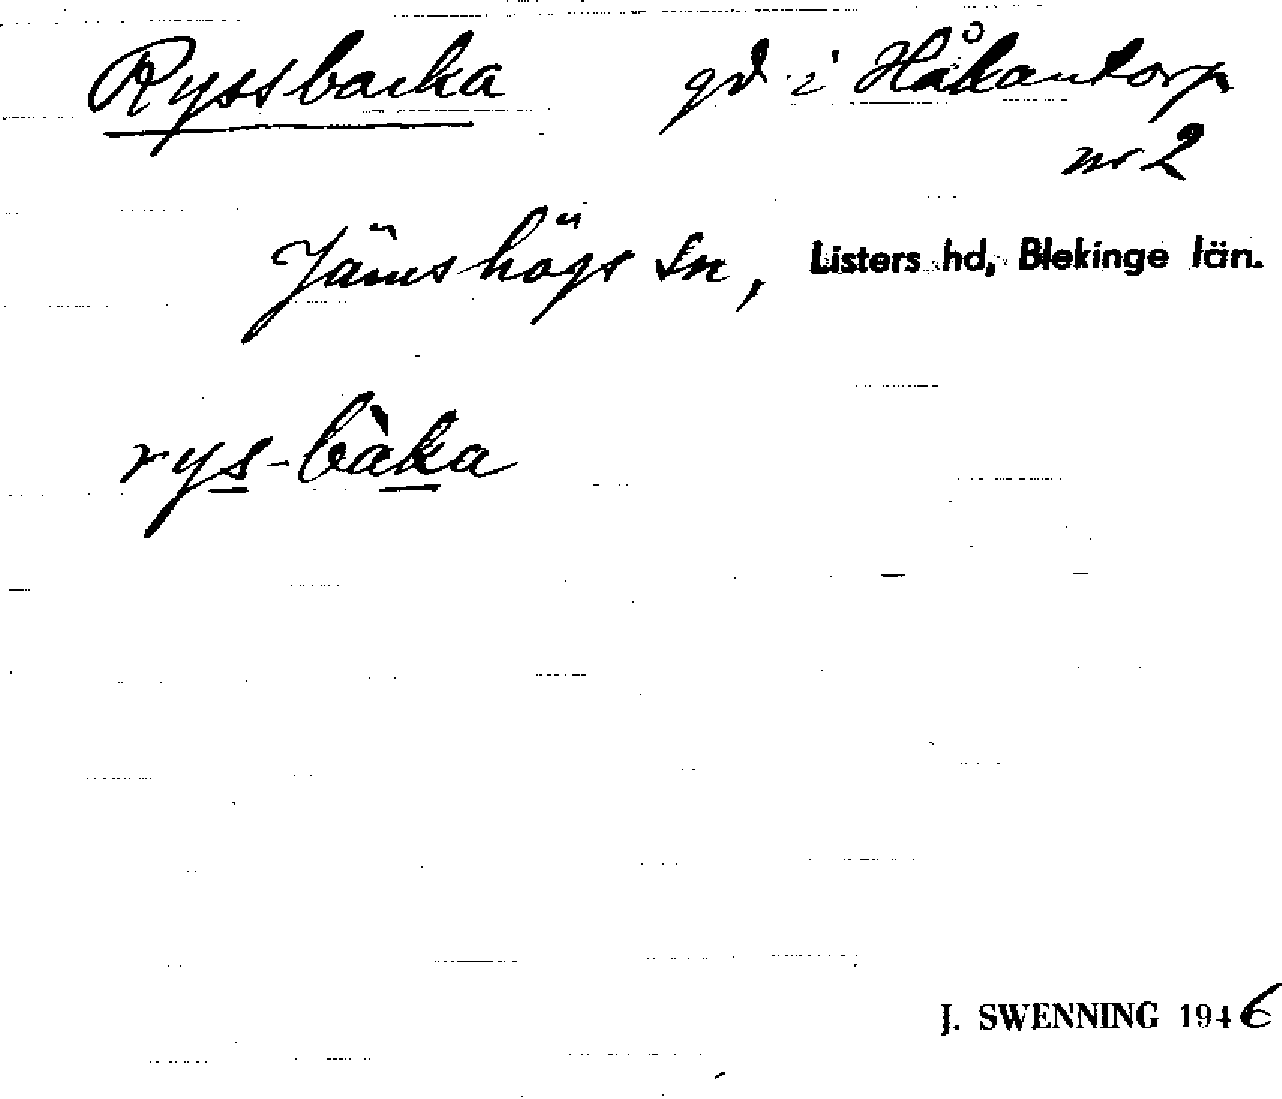 Ryssbacka gd i Håkantorp
nr 2
Jämshögs sn, Listers hd, Blekinge län.
rys-bàka
J. SWENNING 1946